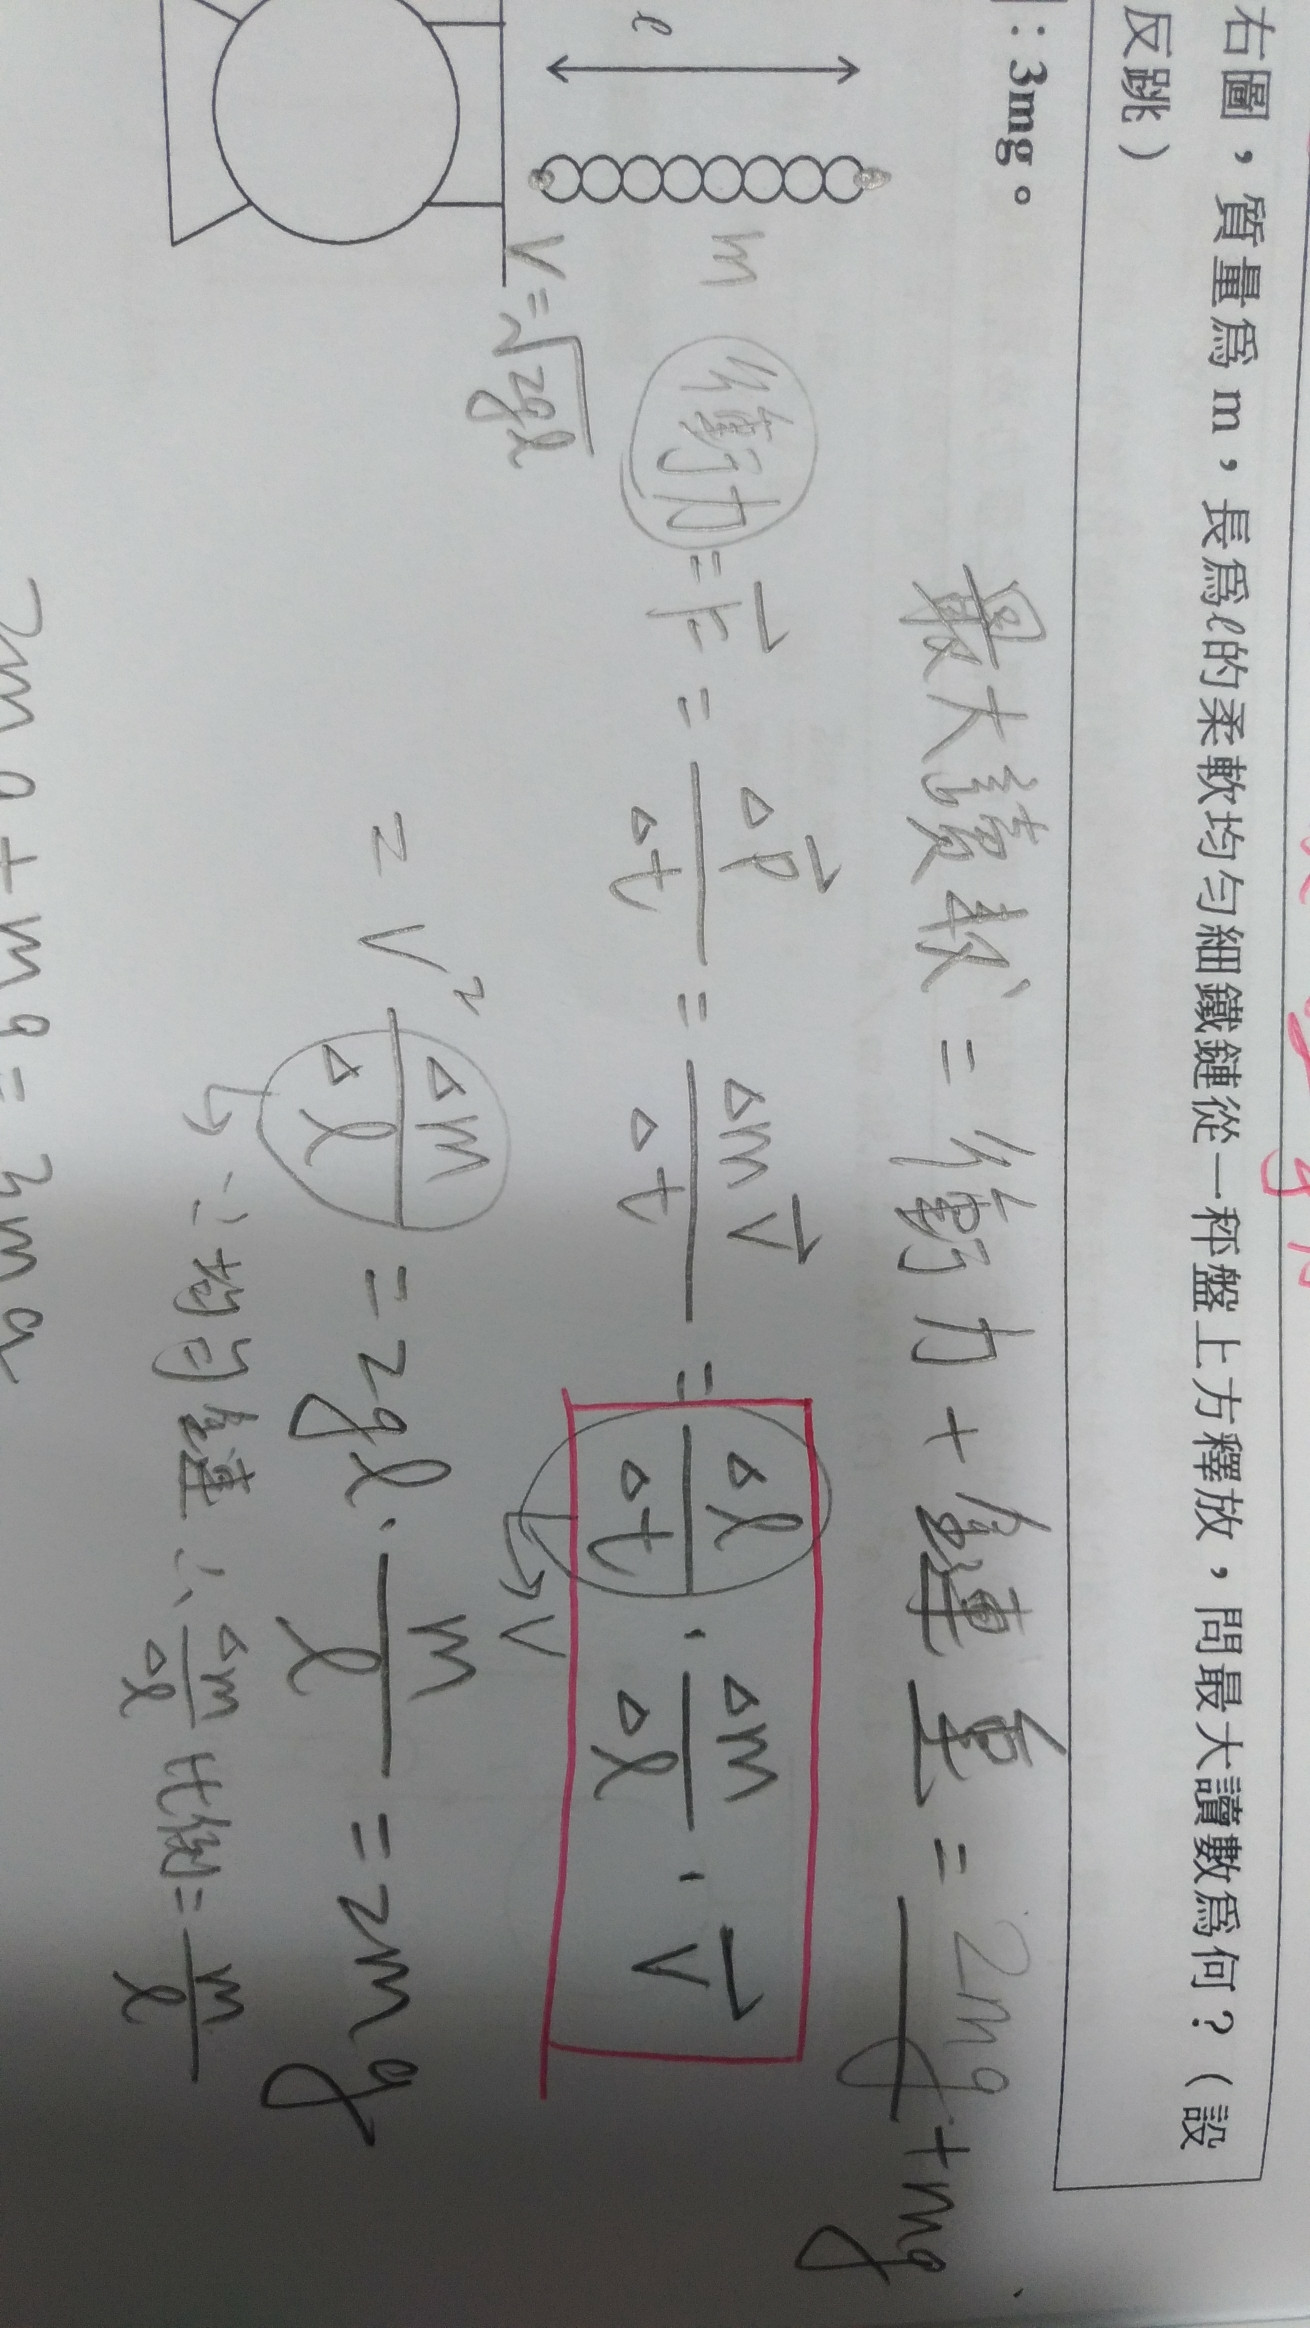 右圖，質量為 m，長為ℓ的柔軟均勻細鐵鏈從一秤盤上方釋放，問最大讀數為何？（設
反跳）
：3mg。
最大讀數 = 衝力 + 鏈重 = 2mg + mg
ℓ
m
衝力 = F = Δp/Δt = Δm v/Δt = Δℓ/Δt · Δm/Δℓ · v
v
v = √2gℓ
= v² Δm/Δℓ = 2gℓ · m/ℓ = 2mg
∵ 均勻鏈 ∴ Δm/Δℓ 比例 = m/ℓ
2mg + mg = 3mg